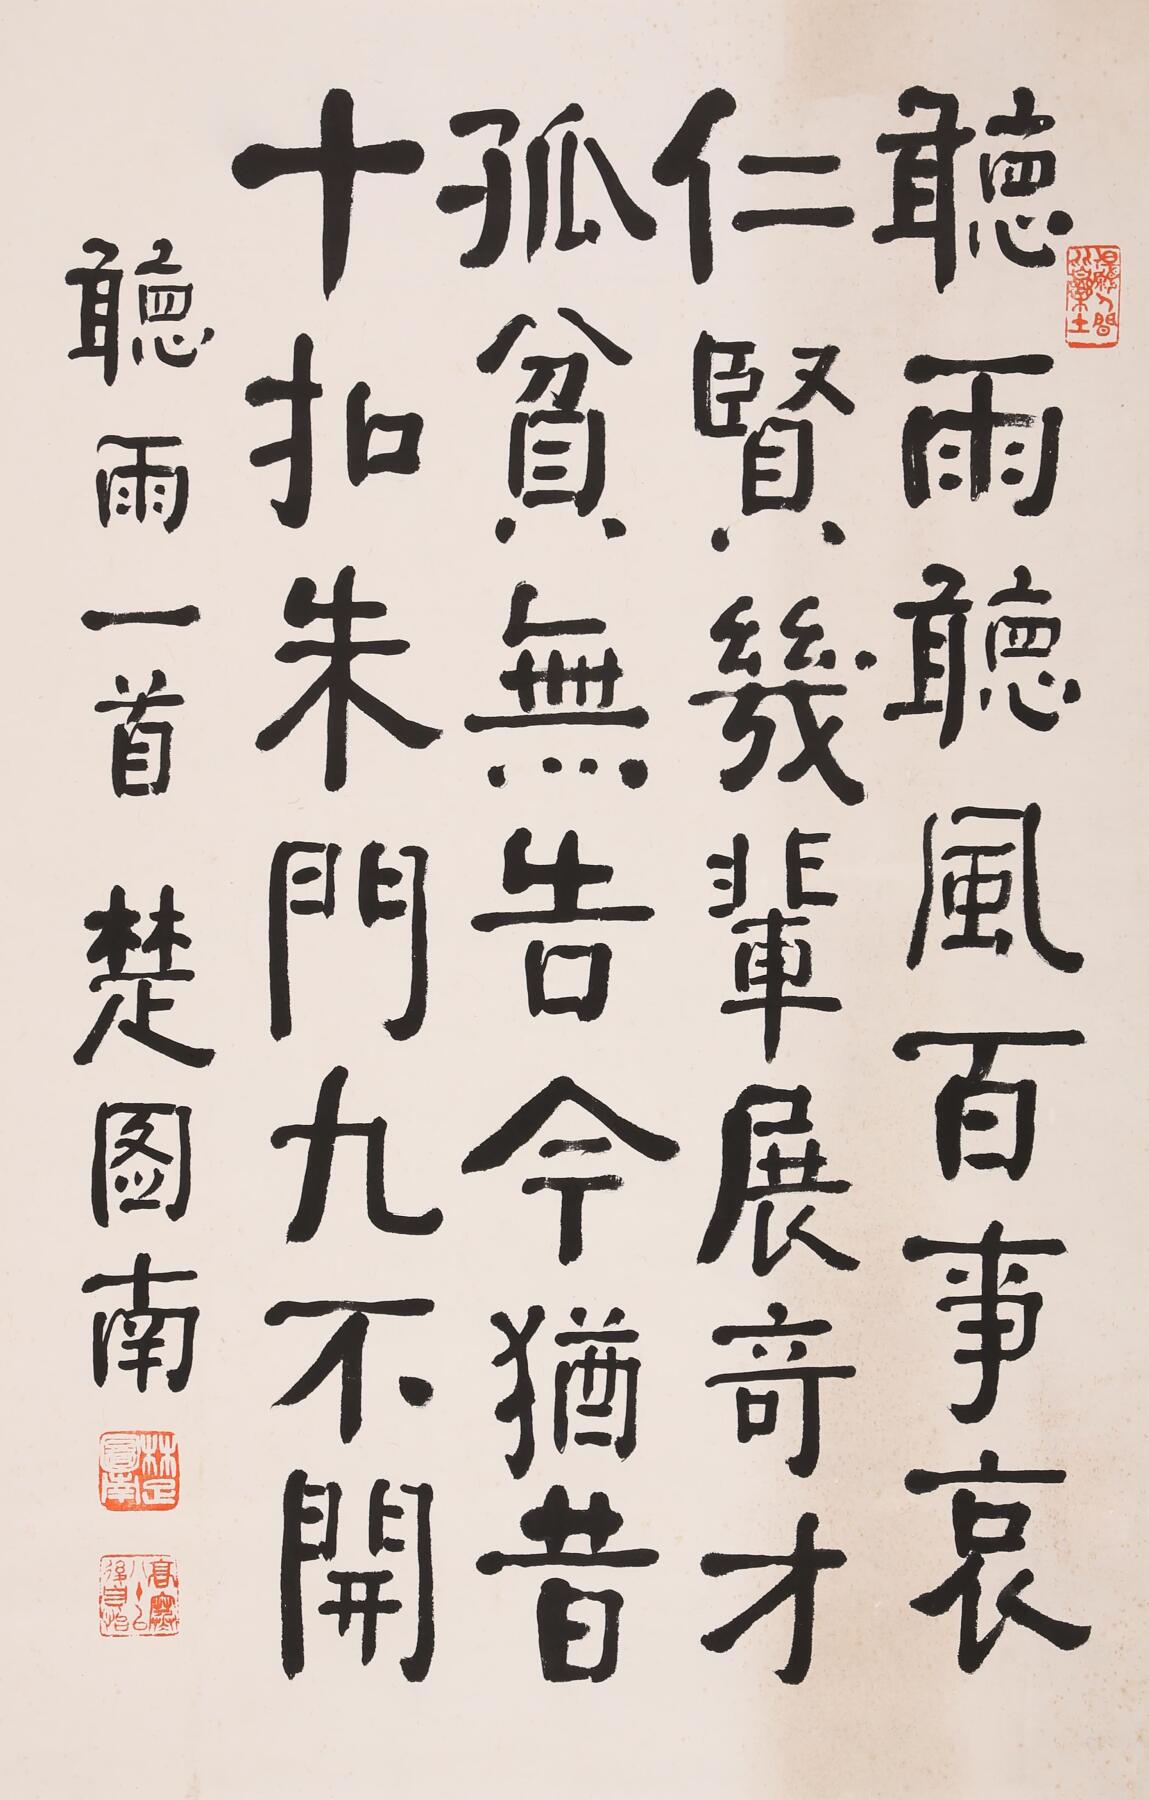 聽雨聽風百事哀
仁賢幾輩展奇才
孤貧無告今猶昔
十扣朱門九不開
聽雨一首 楚图南
楚圖南